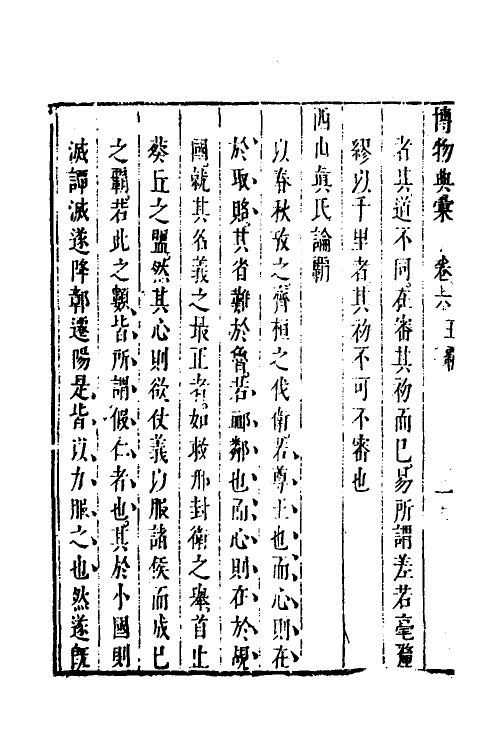 博物典彙 卷六 王霸 一
者其道不同在審其初而已易所謂差若毫釐
繆以千里者其初不可不審也
西山真氏論霸
以春秋攷之齊桓之伐衛若尊王也而心則在
於取賂其省難於魯若䘏鄰也而心則在於覘
國就其名義之最正者如救邢封衛之舉首止
葵丘之盟然其心則欲仗義以服諸侯而成已
之霸若此之類皆所謂假仁者也其於小國則
滅譚滅遂降鄣遷陽是皆以力服之也然遂既